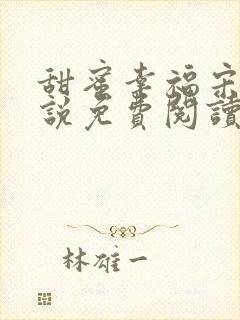 甜蜜幸福宋
說免費閱讀
林雄一